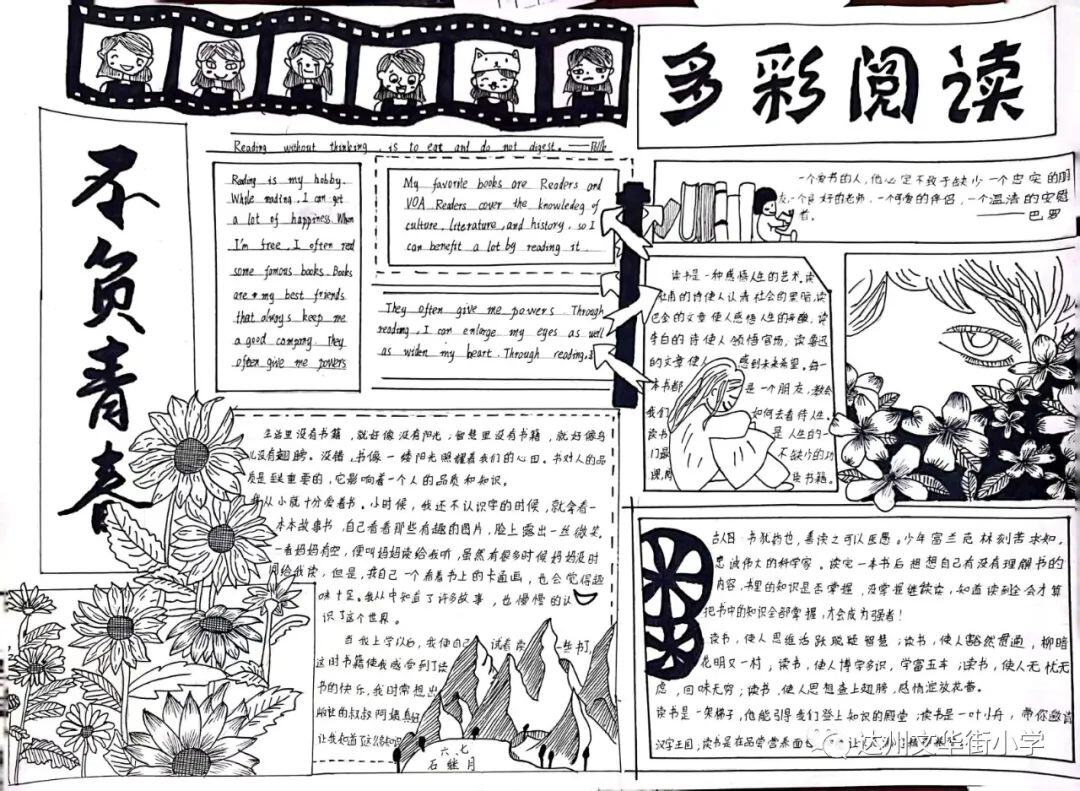 多彩阅读
不负青春
Reading without thinking, is to eat and do not digest.
Reading is my hobby.
While reading, I can get
a lot of happiness. When
I'm free, I often read
some famous books. Books
are my best friends
that always keep me
a good company. They
often give me powers
My favorite books are Readers and
VOA. Readers cover the knowledeg of
culture, literature, and history, so I
can benefit a lot by reading it.
They often give me powers Through
reading, I can enlarge my eyes as well
as widen my heart. Through reading,
一个爱书的人，他必定不致于缺少一个忠实的朋
友，一个良好的老师，一个可爱的伴侣，一个温清的安慰
者。
——巴罗
读书是一种感悟人生的艺术。读
杜甫的诗使人认清社会的黑暗，读
巴金的文章使人感悟人生的
李白的诗使人领悟官场，读鲁迅
的文章使人 感到未来希望。每一
本书都 是一个朋友，教会
我们 如何去看待人生。
读书 是人生的一
门最 不缺少的功
课， 读书籍。
生活里没有书籍，就好像没有阳光，智慧里没有书籍，就好像鸟
儿没有翅膀。没错，书像一缕阳光照耀着我们的心田。书对人的品
质是至关重要的，它影响着一个人的品质和知识。
我从小就十分爱着书。小时候，我还不认识字的时候，就拿着一
本本故事书，自己看着那些有趣的图片，脸上露出一丝微笑。
一看妈妈有空，便叫妈妈读给我听，虽然有很多时候妈妈没时
间给我读，但是，我自己一个看着书上的卡通画，也会觉得趣
味十足。我从中知道了许多故事，也慢慢的认
识了这个世界。
当我上学以后，我便自己试着读一些书了，
这时书籍使我感受到了读
书的快乐，我时常想出
的叔叔阿姨真好
让我知道了这么多知识
六.七
石继月
古人曰：书犹药也，善读之可以医愚。少年富兰克林刻苦求知，
忠诚伟大的科学家。读完一本书后想想自己有没有理解书的
内容，书里的知识是否掌握，没掌握继续读，知道读到全会才算
把书中的知识全部掌握，才会成为强者！
读书，使人思维活跃聪颖智慧；读书，使人豁然贯通，柳暗
花明又一村；读书，使人博学多识，学富五车；读书，使人无忧无
虑，回味无穷；读书，使人思想盎上翅膀，感情泄放花蕾。
读书是一架梯子，他能引导我们登上知识的殿堂；读书是一叶小舟，带你邀请
汉字王国；读书是在品尝营养面包，让
达州文华街小学